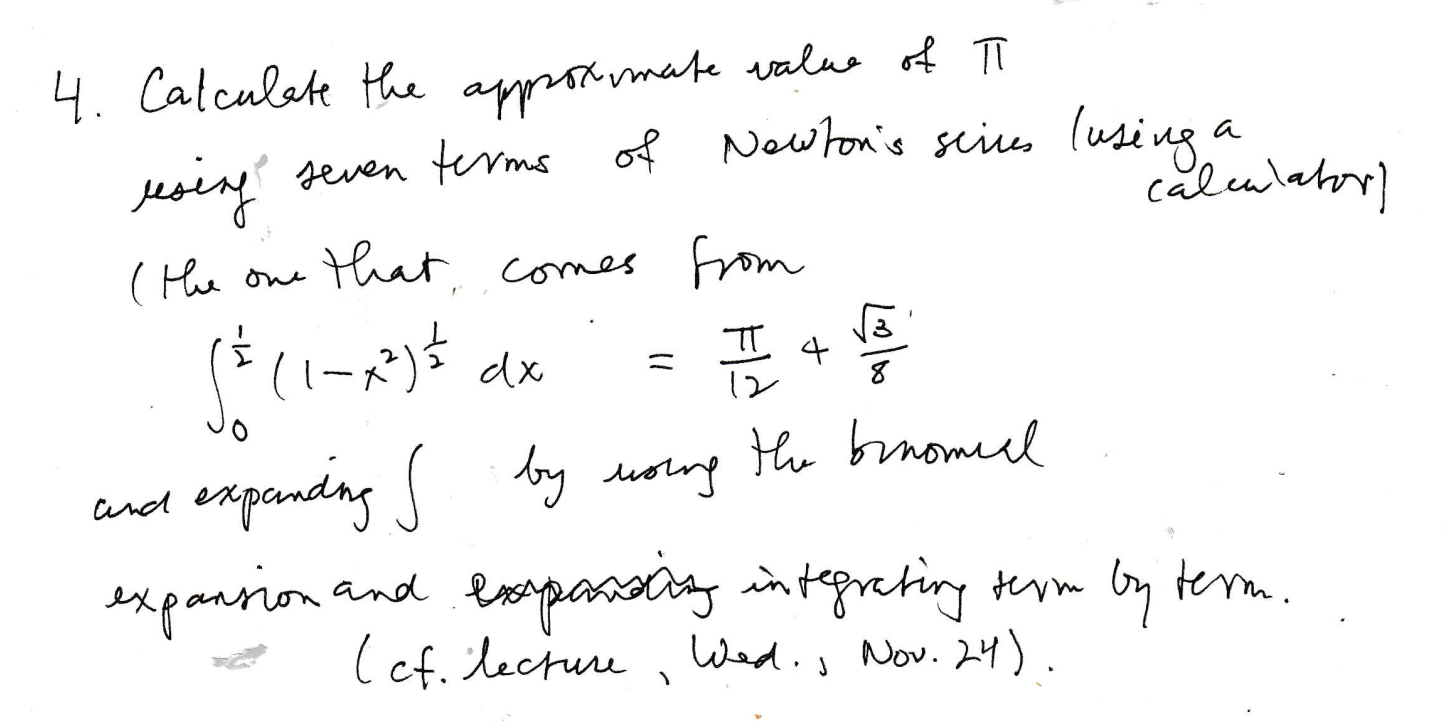 4. Calculate the approximate value of π
using seven terms of Newton's series (using a
calculator)
(the one that comes from
∫₀^{1/2} (1-x²)^{1/2} dx = π/12 + √3/8
and expanding ∫ by using the binomial
expansion and expanding integrating term by term.
(cf. lecture, Wed., Nov. 24).